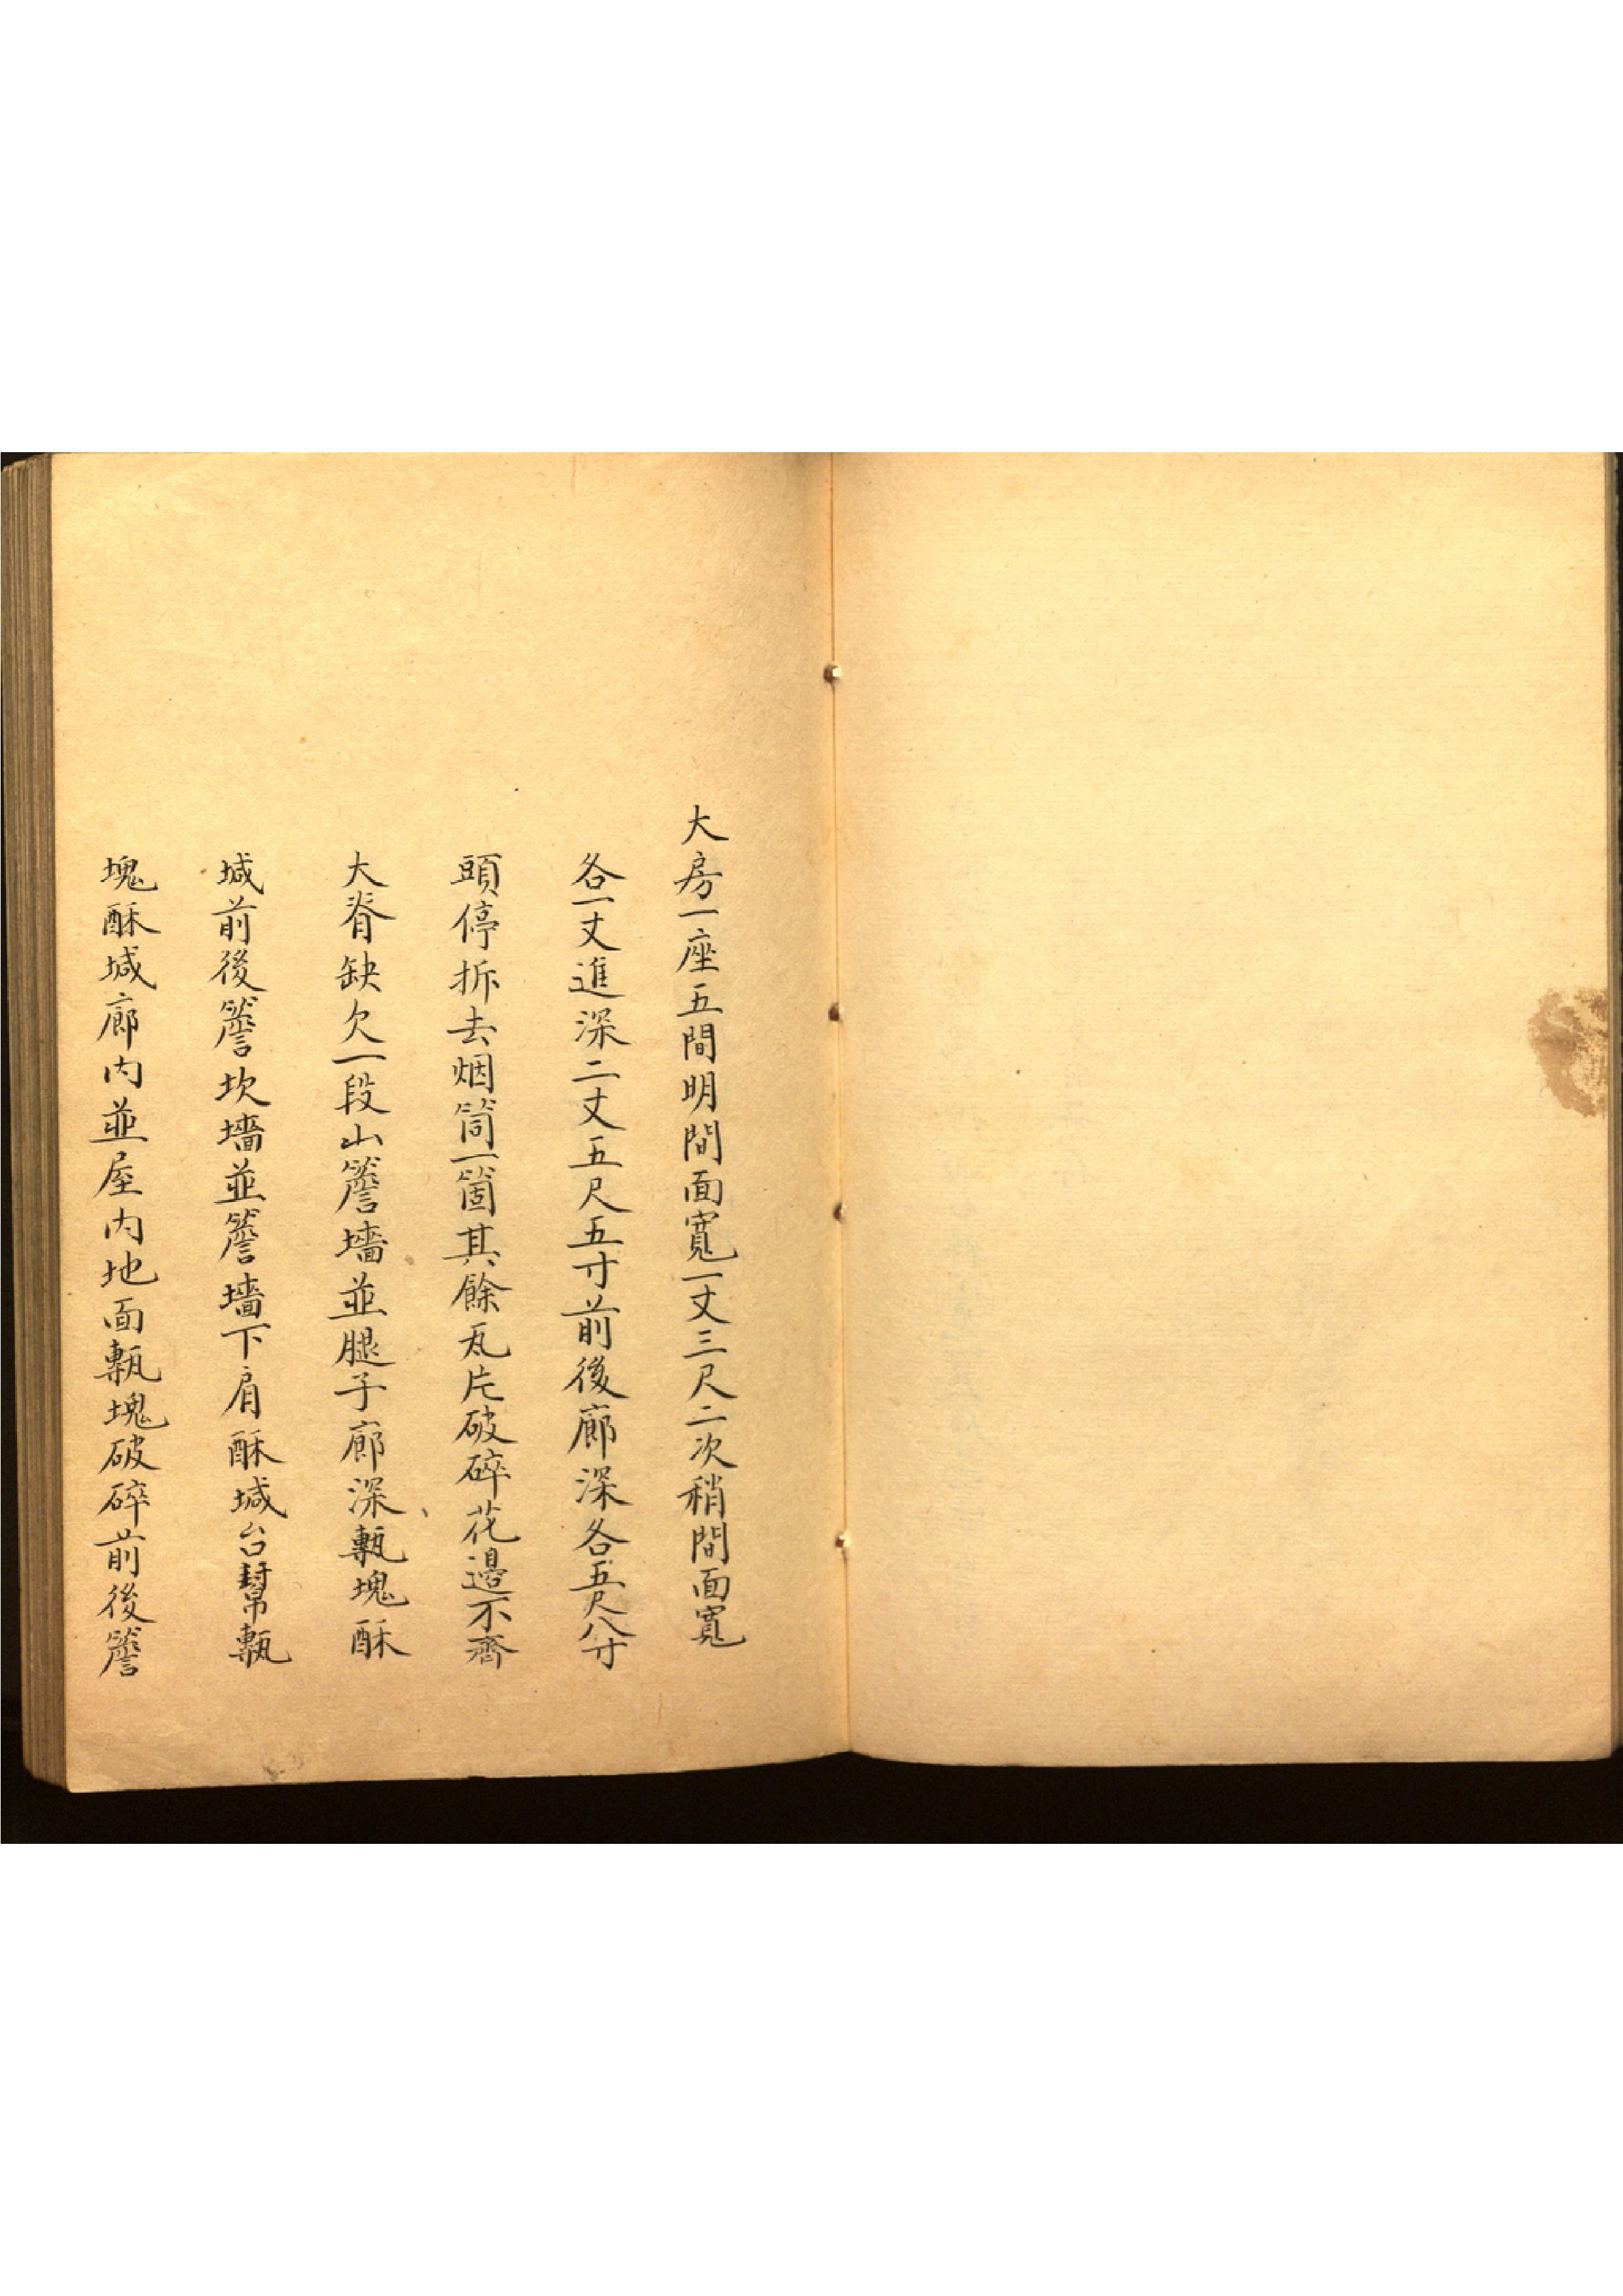 大房一座五間明間面寬一丈三尺二次稍間面寬
各一丈進深二丈五尺五寸前後廊深各五尺八寸
頭停拆去烟筒一箇其餘瓦片破碎花邊不齊
大脊缺欠一段山簷墻並腿子廊深甎塊酥
堿前後簷坎墻並簷墻下肩酥堿台幫甎
塊酥堿廊內並屋內地面甎塊破碎前後簷